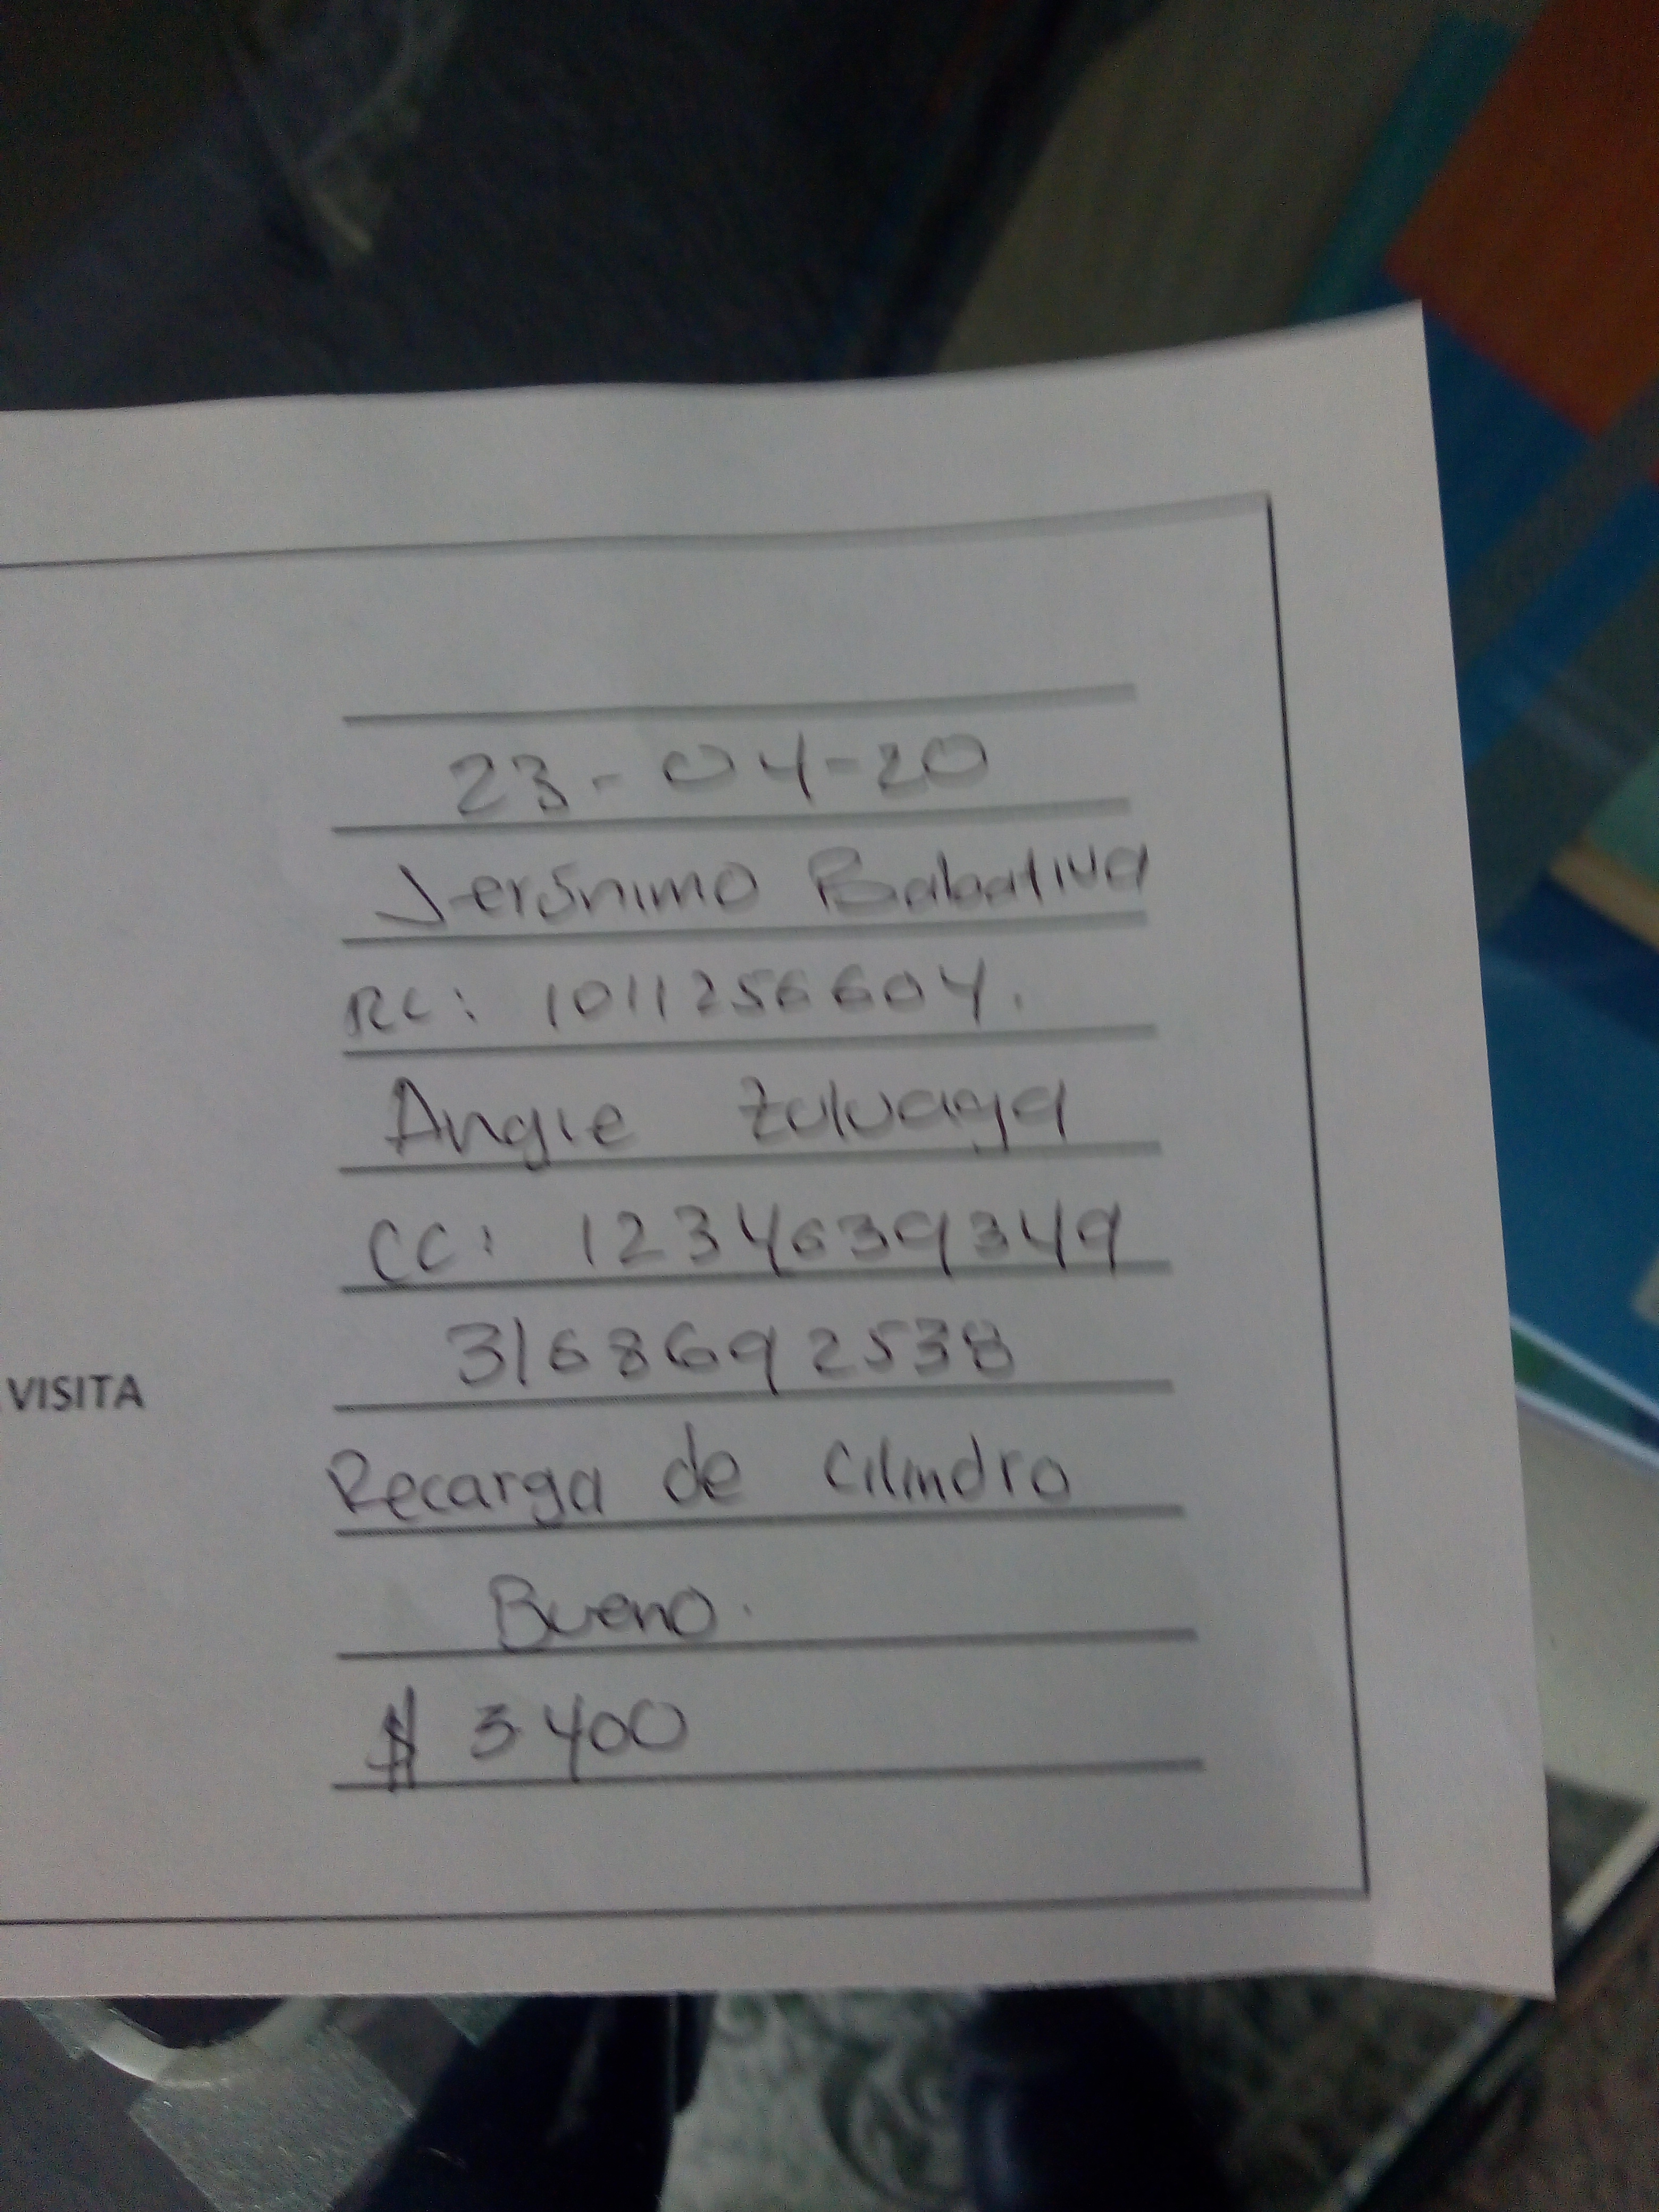 23-04-20
Jerónimo Babativa
RC: 1011256604.
Angie Zuluaga
CC: 1234639349
3168692538
VISITA
Recarga de Cilindro
Bueno.
$ 3400